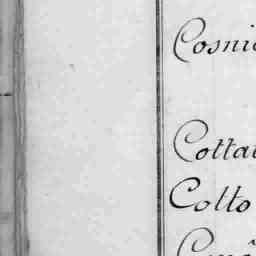 Cosni
Cotta
Cotto